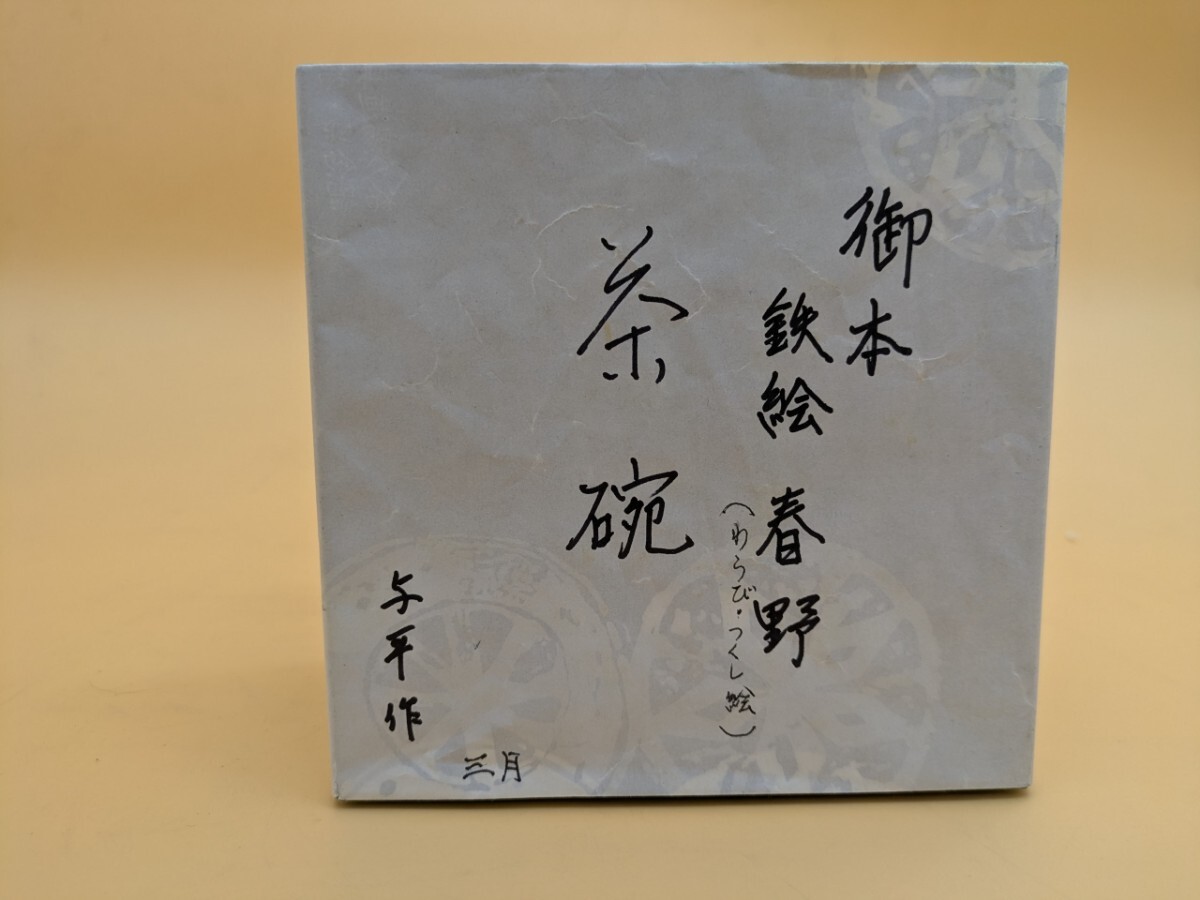 御本
鉄絵 春野
(わらび・つくし絵)
茶碗
与平作
三月